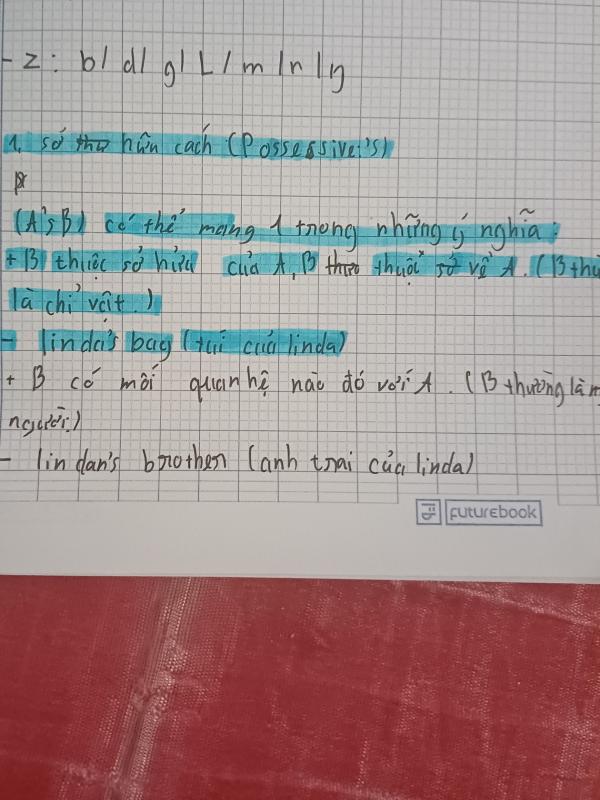 - z: b/ d/ g/ L/ m/n/ŋ
1, sở hữu cách (Possessive's)
(A's B) có thể mang 1 trong những ý nghĩa:
+ B thuộc sở hữu của A, B thuộc về A. (B thư
là chỉ vật.)
- linda's bag (túi của linda)
+ B có mối quan hệ nào đó với A. (B thường là
người.)
- lindan's brother (anh trai của linda)
FUTUREBOOK